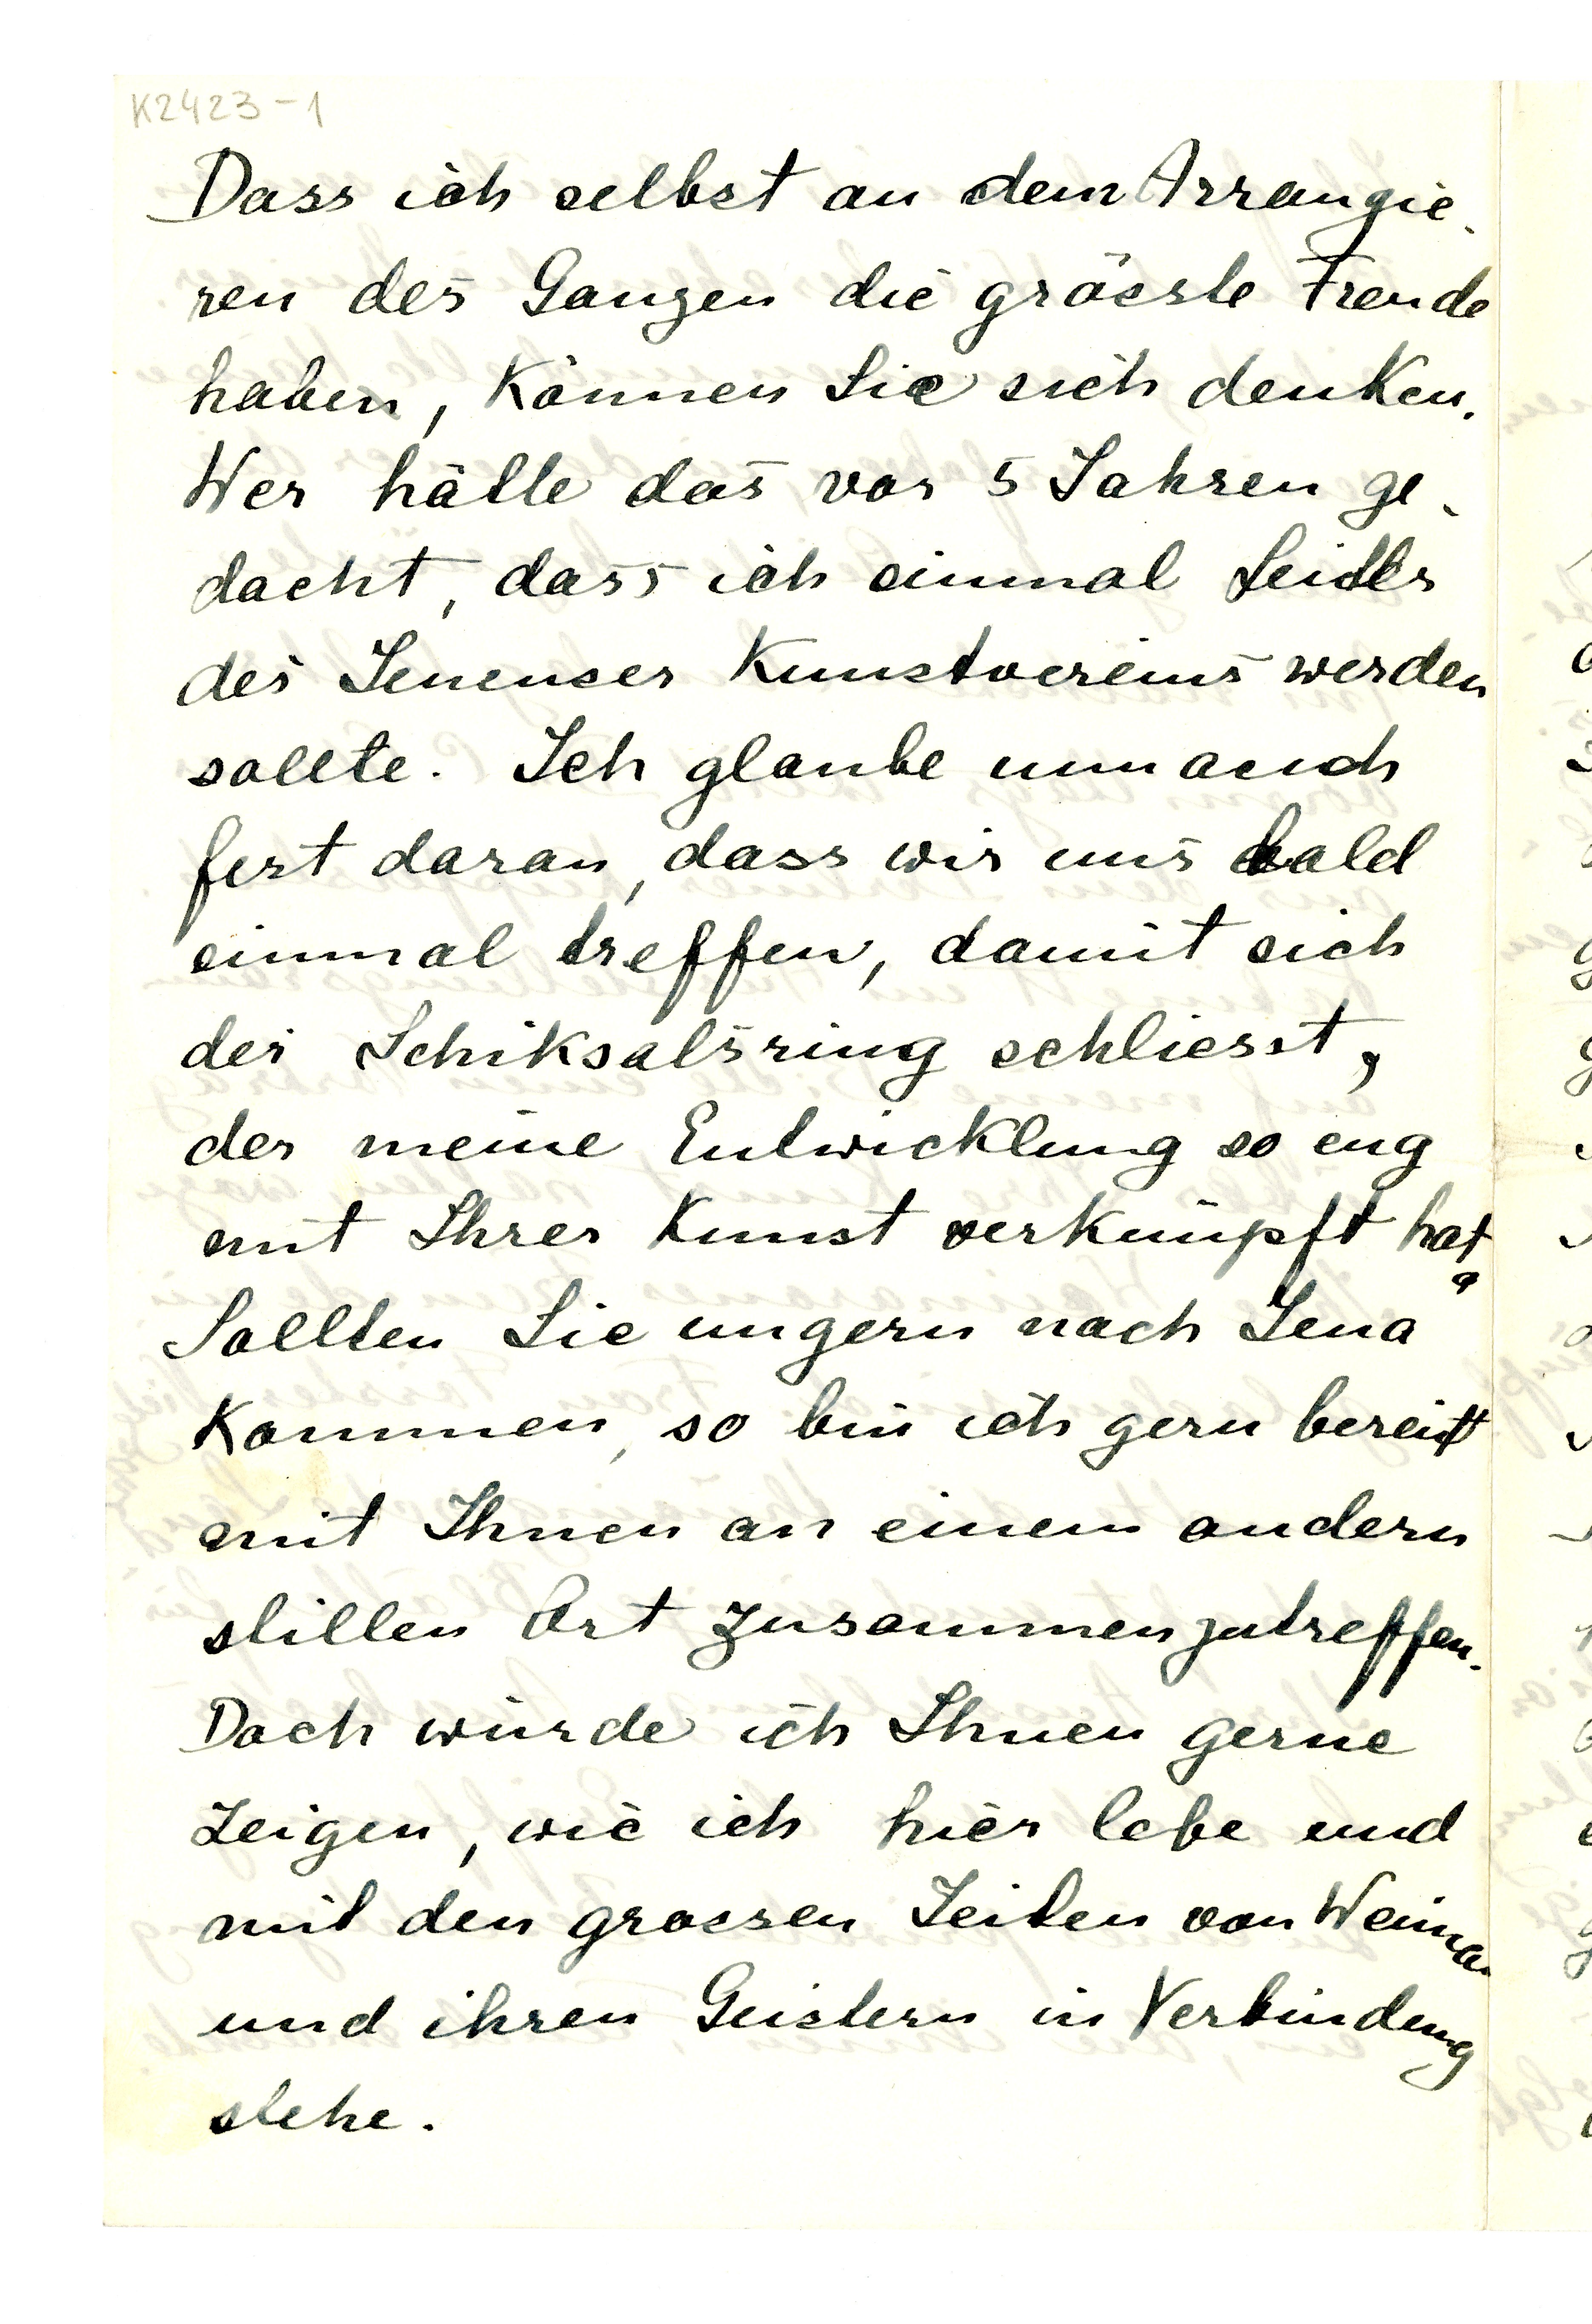 K2423-1
Dass ich selbst an dem Arrangie-
ren des Ganzen die grösste Freude
haben, Können Sie sich denKen.
Wer hätte das vor 5 Jahren ge-
dacht, dass ich einmal Leiter
des Jenenser Kunstvereins werden
sollte. Ich glaube nun auch
fest daran, dass wir uns bald
einmal treffen, damit sich
der Schiksalsring schliesst,
der meine Entwicklung so eng
mit Ihrer Kunst verknüpft hat.
Sollten Sie ungern nach Jena
Kommen, so bin ich gern bereit
mit Ihnen an einem andern
stillen Ort zusammenzutreffen.
Doch würde ich Ihnen gerne
zeigen, wie ich hier lebe und
mit den grossen Zeiten von Weimar
und ihren Geistern in Verbindung
stehe.